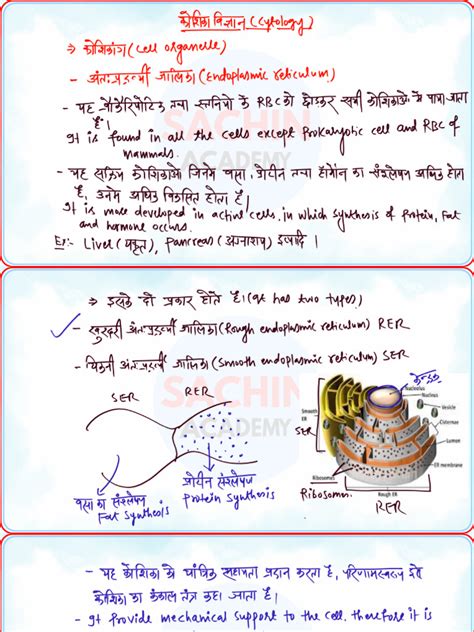 कोशिका विज्ञान (Cytology)
⇒ कोशिकांग (Cell organelle)
- अंतःप्रद्रव्यी जालिका (Endoplasmic reticulum)
- यह प्रोकैरियोटिक तथा स्तनियों के RBC को छोड़कर सभी कोशिकाओं में पाया जाता
है।
It is found in all the cells except Prokaryotic cell and RBC of
mammals.
- यह सक्रिय कोशिकाओं जिनमें वसा, प्रोटीन तथा हार्मोन का संश्लेषण अधिक होता
है, उनमें अधिक विकसित होता है।
It is more developed in active cells, in which synthesis of Protein, Fat
and hormone occurs.
Ex:- Liver (यकृत), Pancreas (अग्नाशय) इत्यादि।
SACHIN
ACADEMY
⇒ इसके दो प्रकार होते है। (It has two types)
- खुरदरी अंतःप्रद्रव्यी जालिका (Rough endoplasmic reticulum) RER
- चिकनी अंतःप्रद्रव्यी जालिका (Smooth endoplasmic reticulum) SER
SACHIN
ACADEMY
SER RER
वसा का संश्लेषण
Fat Synthesis
प्रोटीन संश्लेषण
Protein Synthesis
केन्द्रक
Nucleolus
Nucleus
Vesicle
Cisternae
Lumen
ER membrane
Smooth
ER
Ribosomes
Ribosomes
Rough ER
RER
- यह कोशिका को यांत्रिक सहायता प्रदान करता है, परिणामस्वरूप इसे
कोशिका का कंकाल तंत्र कहा जाता है।
- It Provide mechanical support to the cell. therefore it is